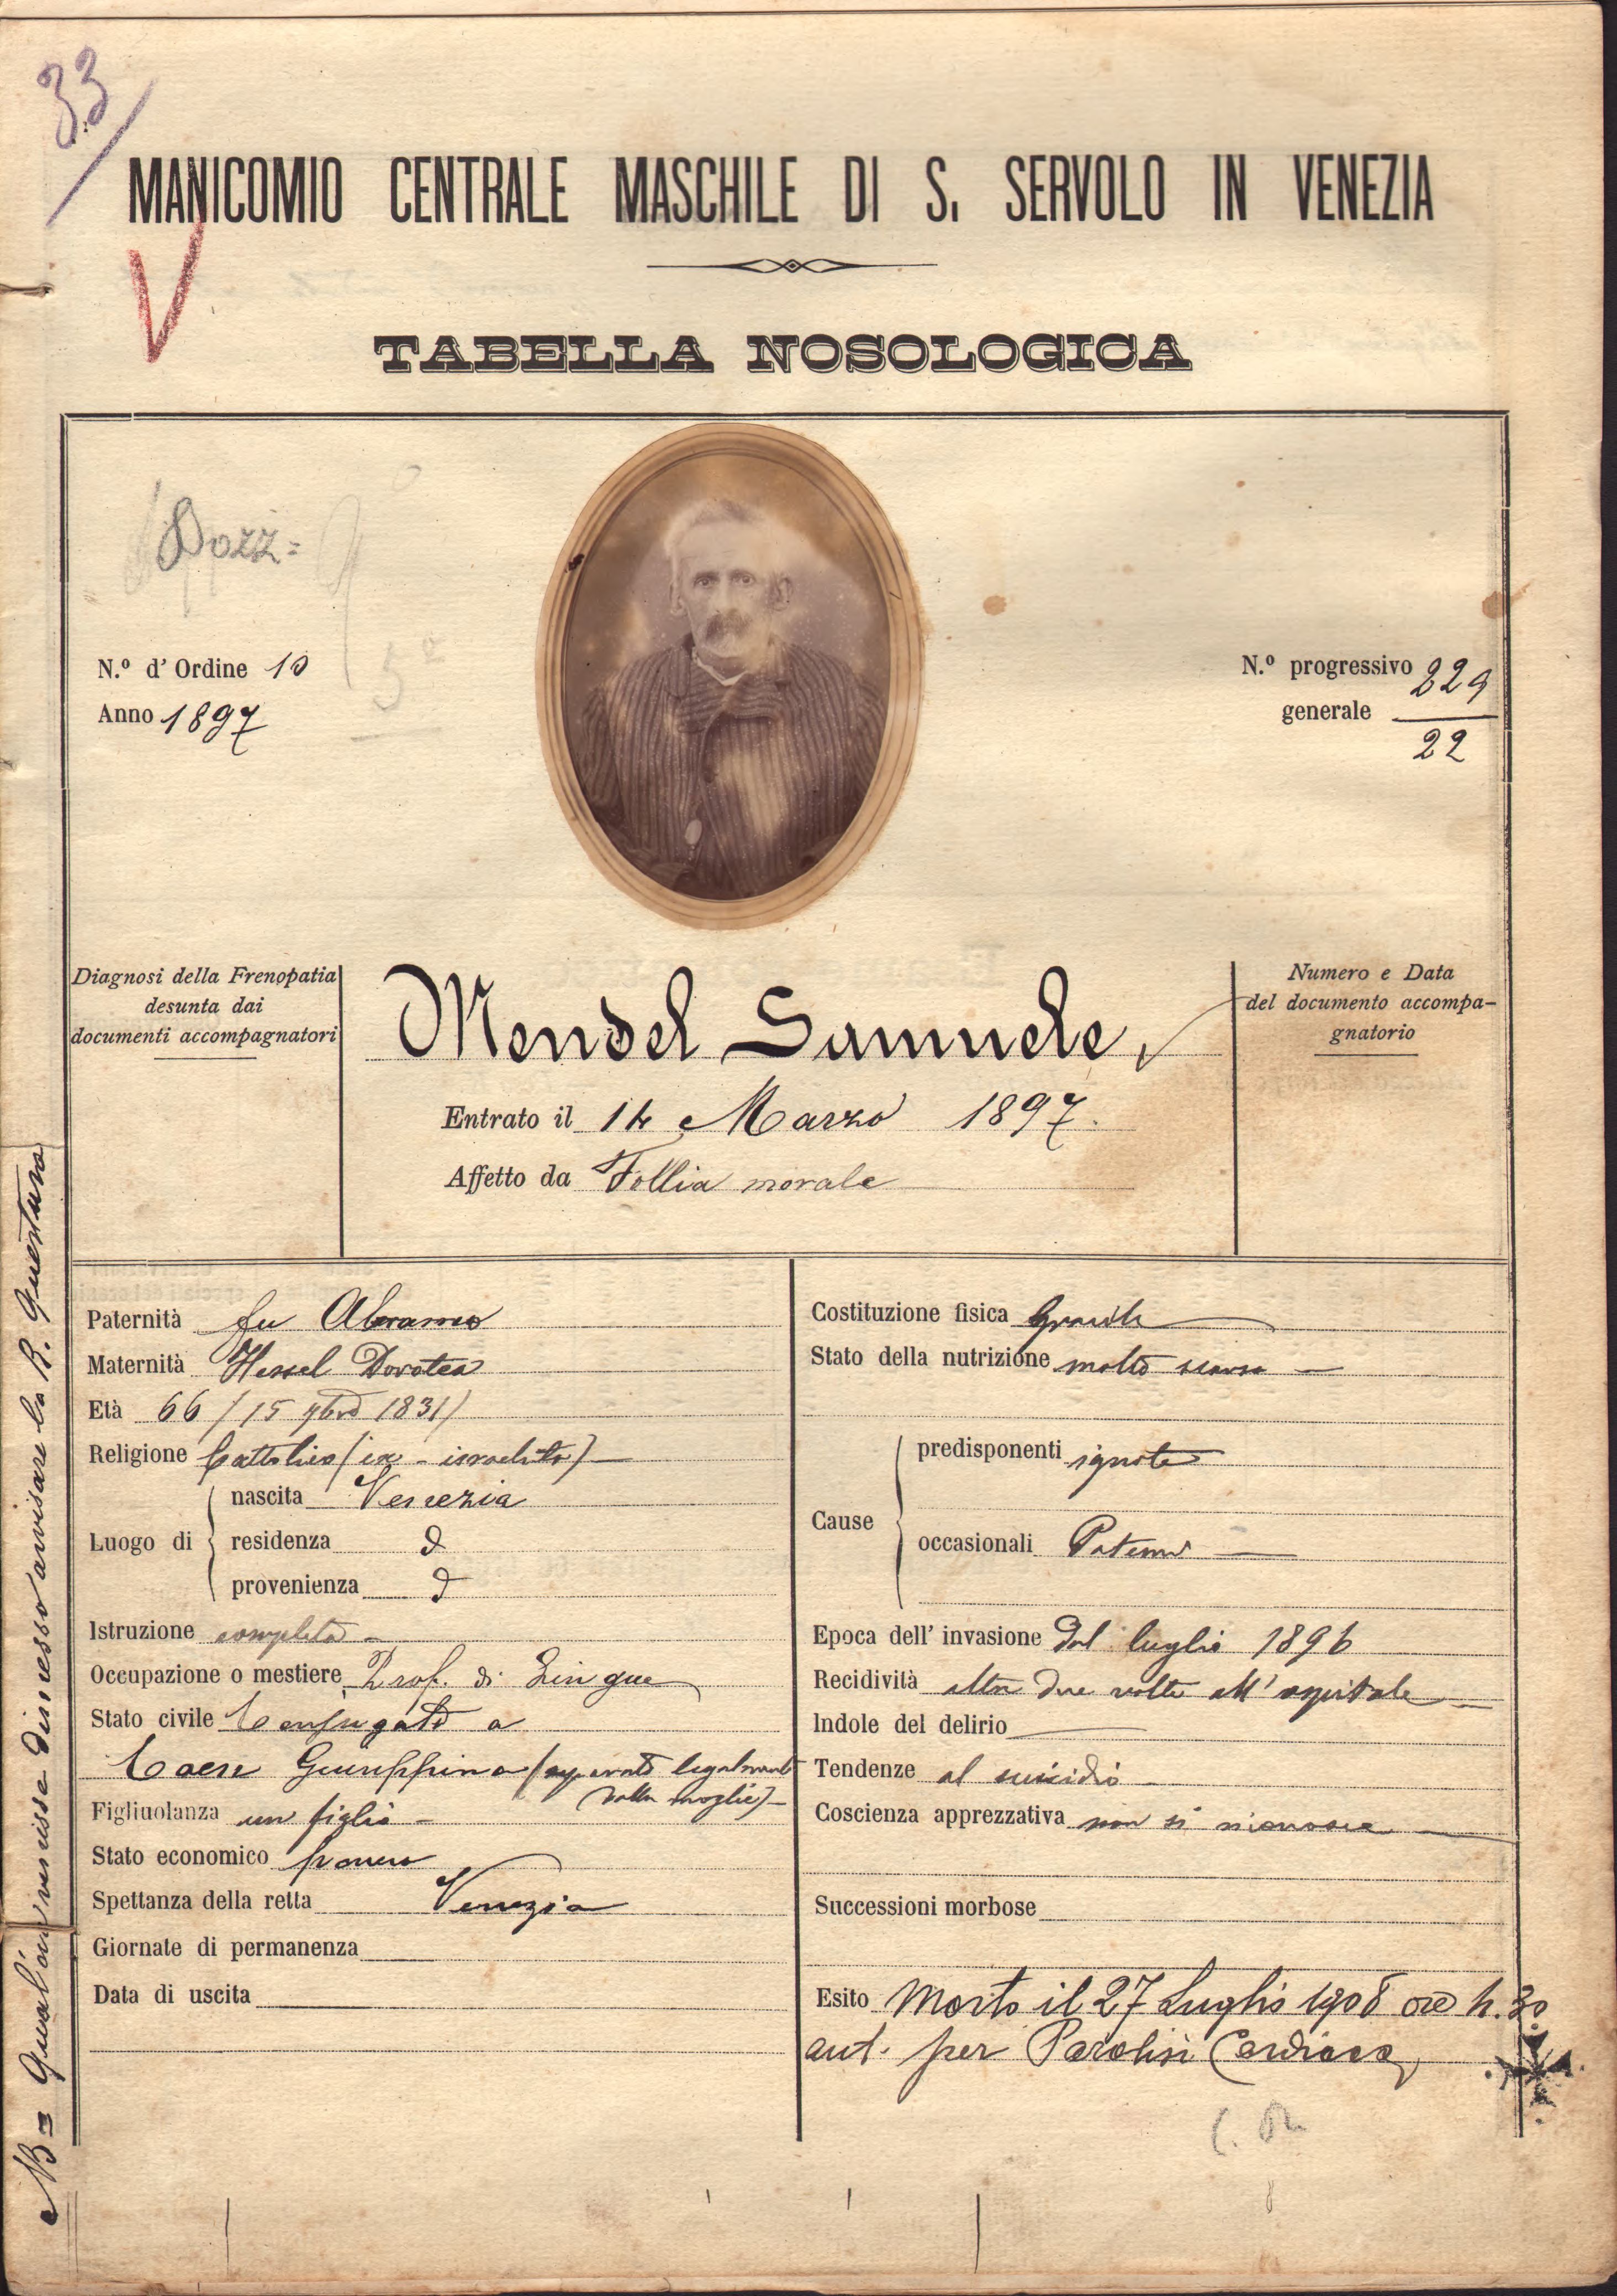 33
MANICOMIO CENTRALE MASCHILE DI S. SERVOLO IN VENEZIA
V
TABELLA NOSOLOGICA
Dozz=
N.º d' Ordine 10
5ª
Anno 1897
N.º progressivo generale 229
22
Diagnosi della Frenopatia
desunta dai
documenti accompagnatori
Mendel Samuele
Entrato il 14 Marzo 1897.
Affetto da Follia morale
Numero e Data
del documento accompa-
gnatorio
Paternità fu Abramo
Maternità Hessel Dorotea
Età 66 (15 9bre 1831)
Religione Cattolico (ex-israelita)
Luogo di
nascita Venezia
residenza d
provenienza d
Istruzione completa
Occupazione o mestiere Prof. di Lingue
Stato civile Coniugato a
Giuseppina (separato legalmente
dalla moglie)
Figliuolanza un figlio
Stato economico povero
Spettanza della retta Venezia
Giornate di permanenza
Data di uscita
Costituzione fisica Gracile
Stato della nutrizione molto scarsa
Cause
predisponenti ignote
occasionali Patemi
Epoca dell' invasione dal luglio 1896
Recidività altre due volte all' ospitale
Indole del delirio
Tendenze al suicidio
Coscienza apprezzativa non si riconosce
Successioni morbose
Esito Morto il 27 Luglio 1908 ore 4.30
ant. per Paralisi Cardiaca
NB= Qualora venisse dimesso avvisare la R. Questura